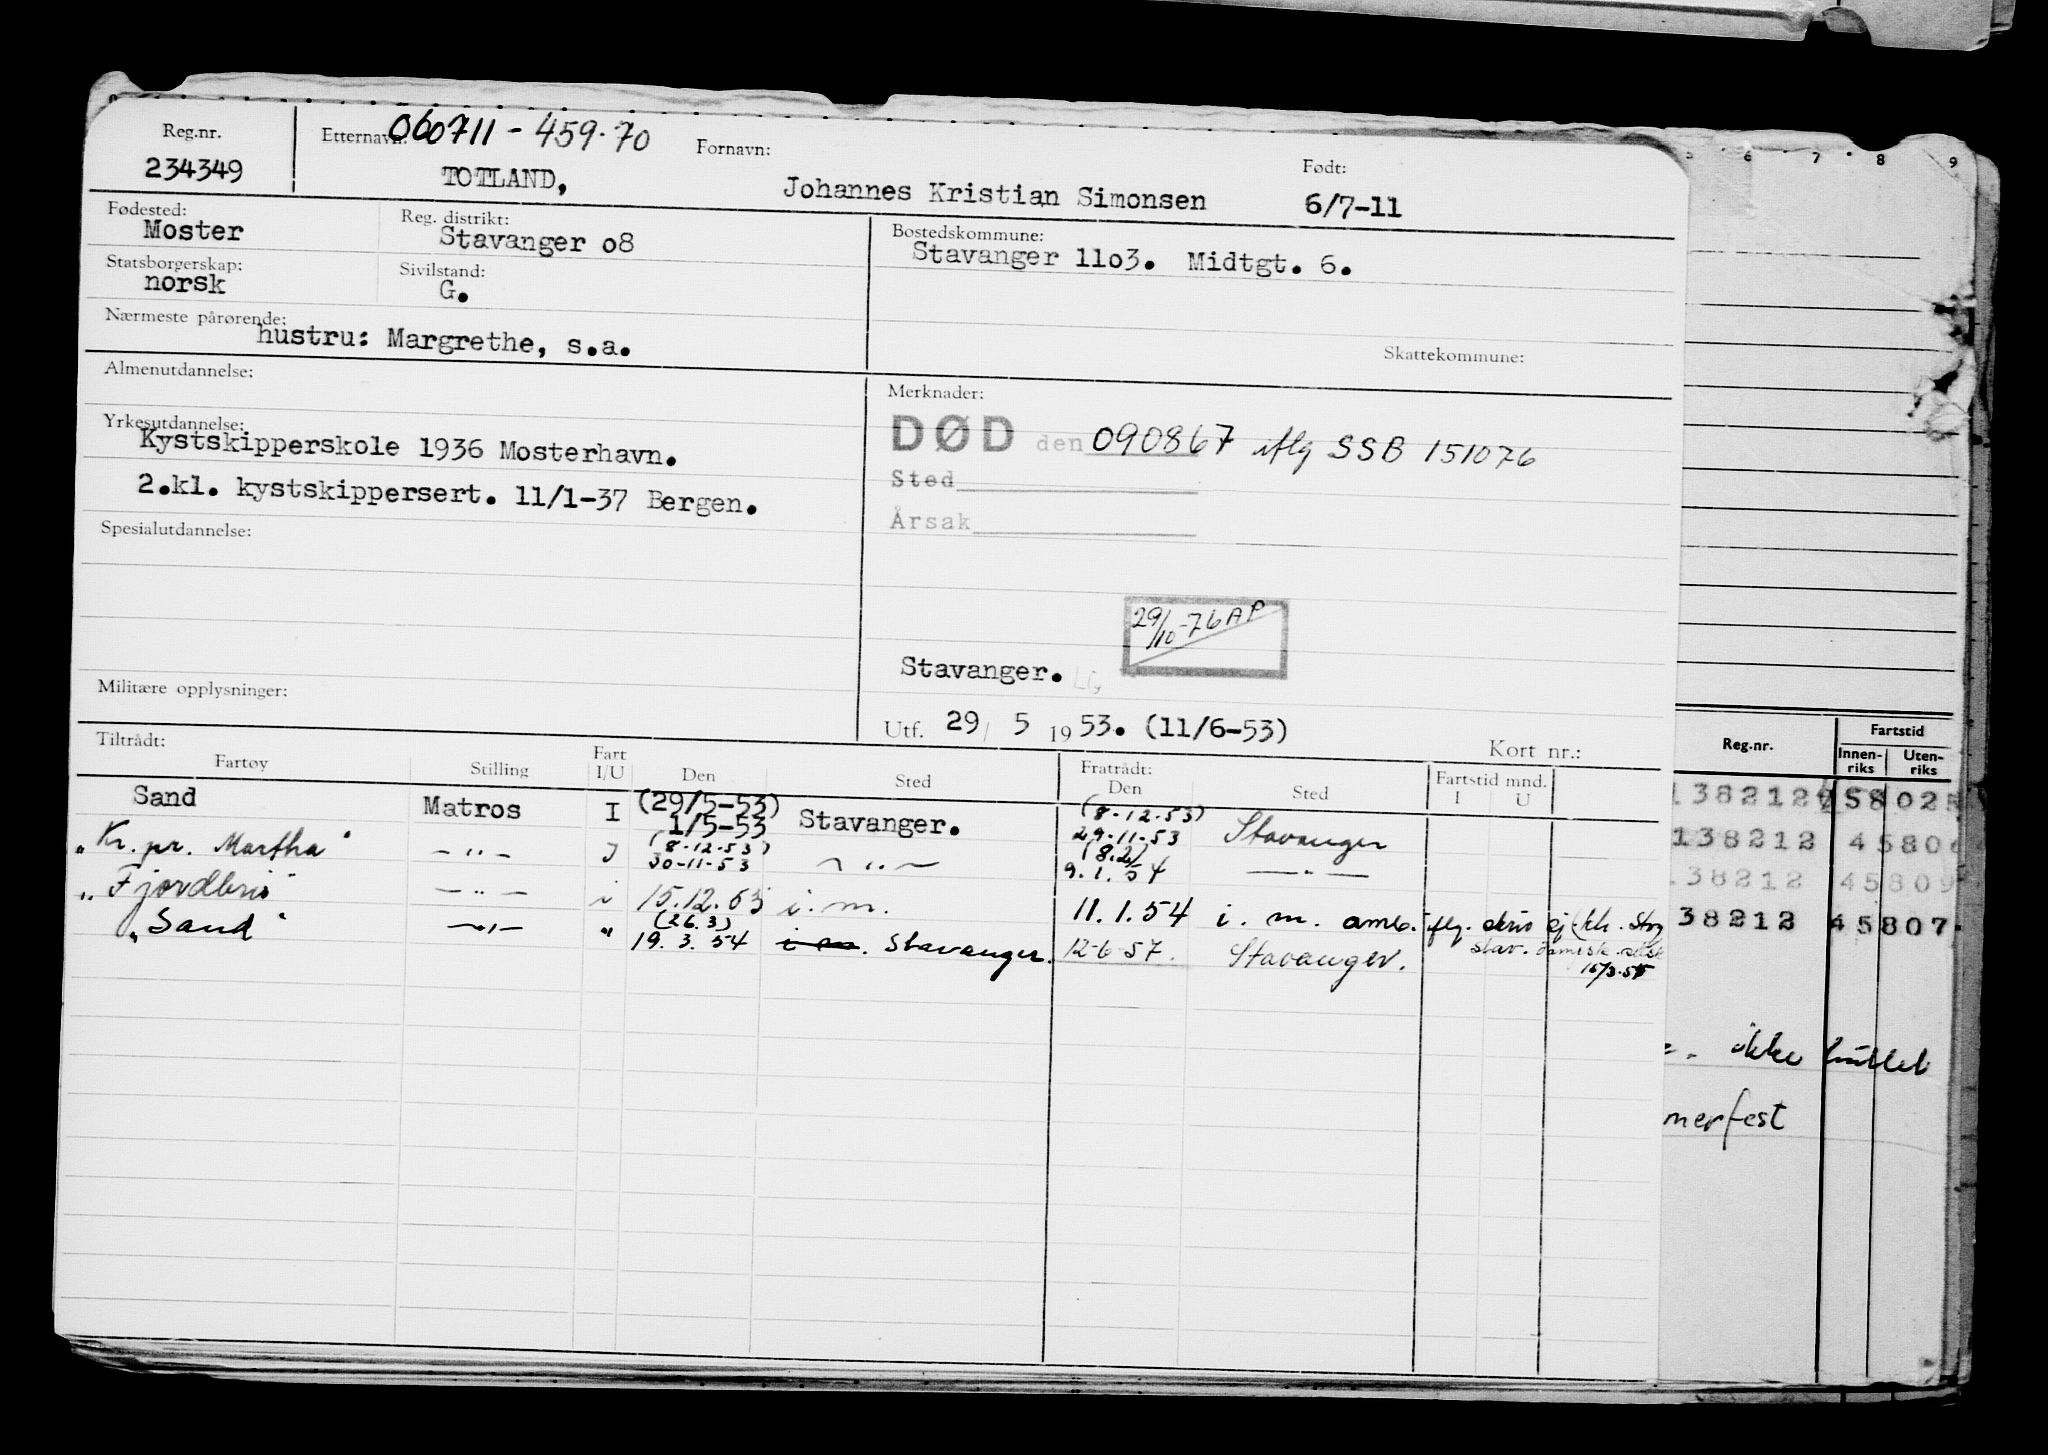 Reg.nr. Etternavn: 060711 - 459.70 Fornavn: Født:
234349 TOTLAND, Johannes Kristian Simonsen 6/7-11
Fødested: Reg. distrikt: Bostedskommune:
Moster Stavanger o8 Stavanger 11o3. Midtgt. 6.
Statsborgerskap: Sivilstand:
norsk G.
Nærmeste pårørende:
hustru: Margrethe, s.a.
Skattekommune:
Almenutdannelse:
Merknader:
Yrkesutdannelse:
Kystskipperskole 1936 Mosterhavn.
2.kl. kystskippersert. 11/1-37 Bergen.
DØD den 090867 iflg SSB 151076
Sted
Årsak
Spesialutdannelse:
29/10-76 AP
Stavanger.
Militære opplysninger:
Utf. 29/ 5 1953. (11/6-53)
Kort nr.:
Tiltrådt: Fratrådt:
Fartøy Stilling Fart I/U Den Sted Den Sted Fartstid mnd. I U
Sand Matros I (29/5-53) 1/5-53 Stavanger. (8.12.53) 29.11.53 Stavanger
"Kr. pr. Martha" - " - I (8-12-53) 30-11-53 - " - (8.2/) 9.1.54 - " -
"Fjordbris" - " - i 15.12.53 i. m. 11.1.54 i. m. anm. iflg. skriv
"Sand" - " - " (26.3) 19.3.54 i m. Stavanger. 12-6-57. Stavanger.
Stav.
15/3-55
Reg.nr. Fartstid
Innenriks Utenriks
138212
138212 4580
38212 45809
38212 45807
ikke
merfest
6 7 8 9